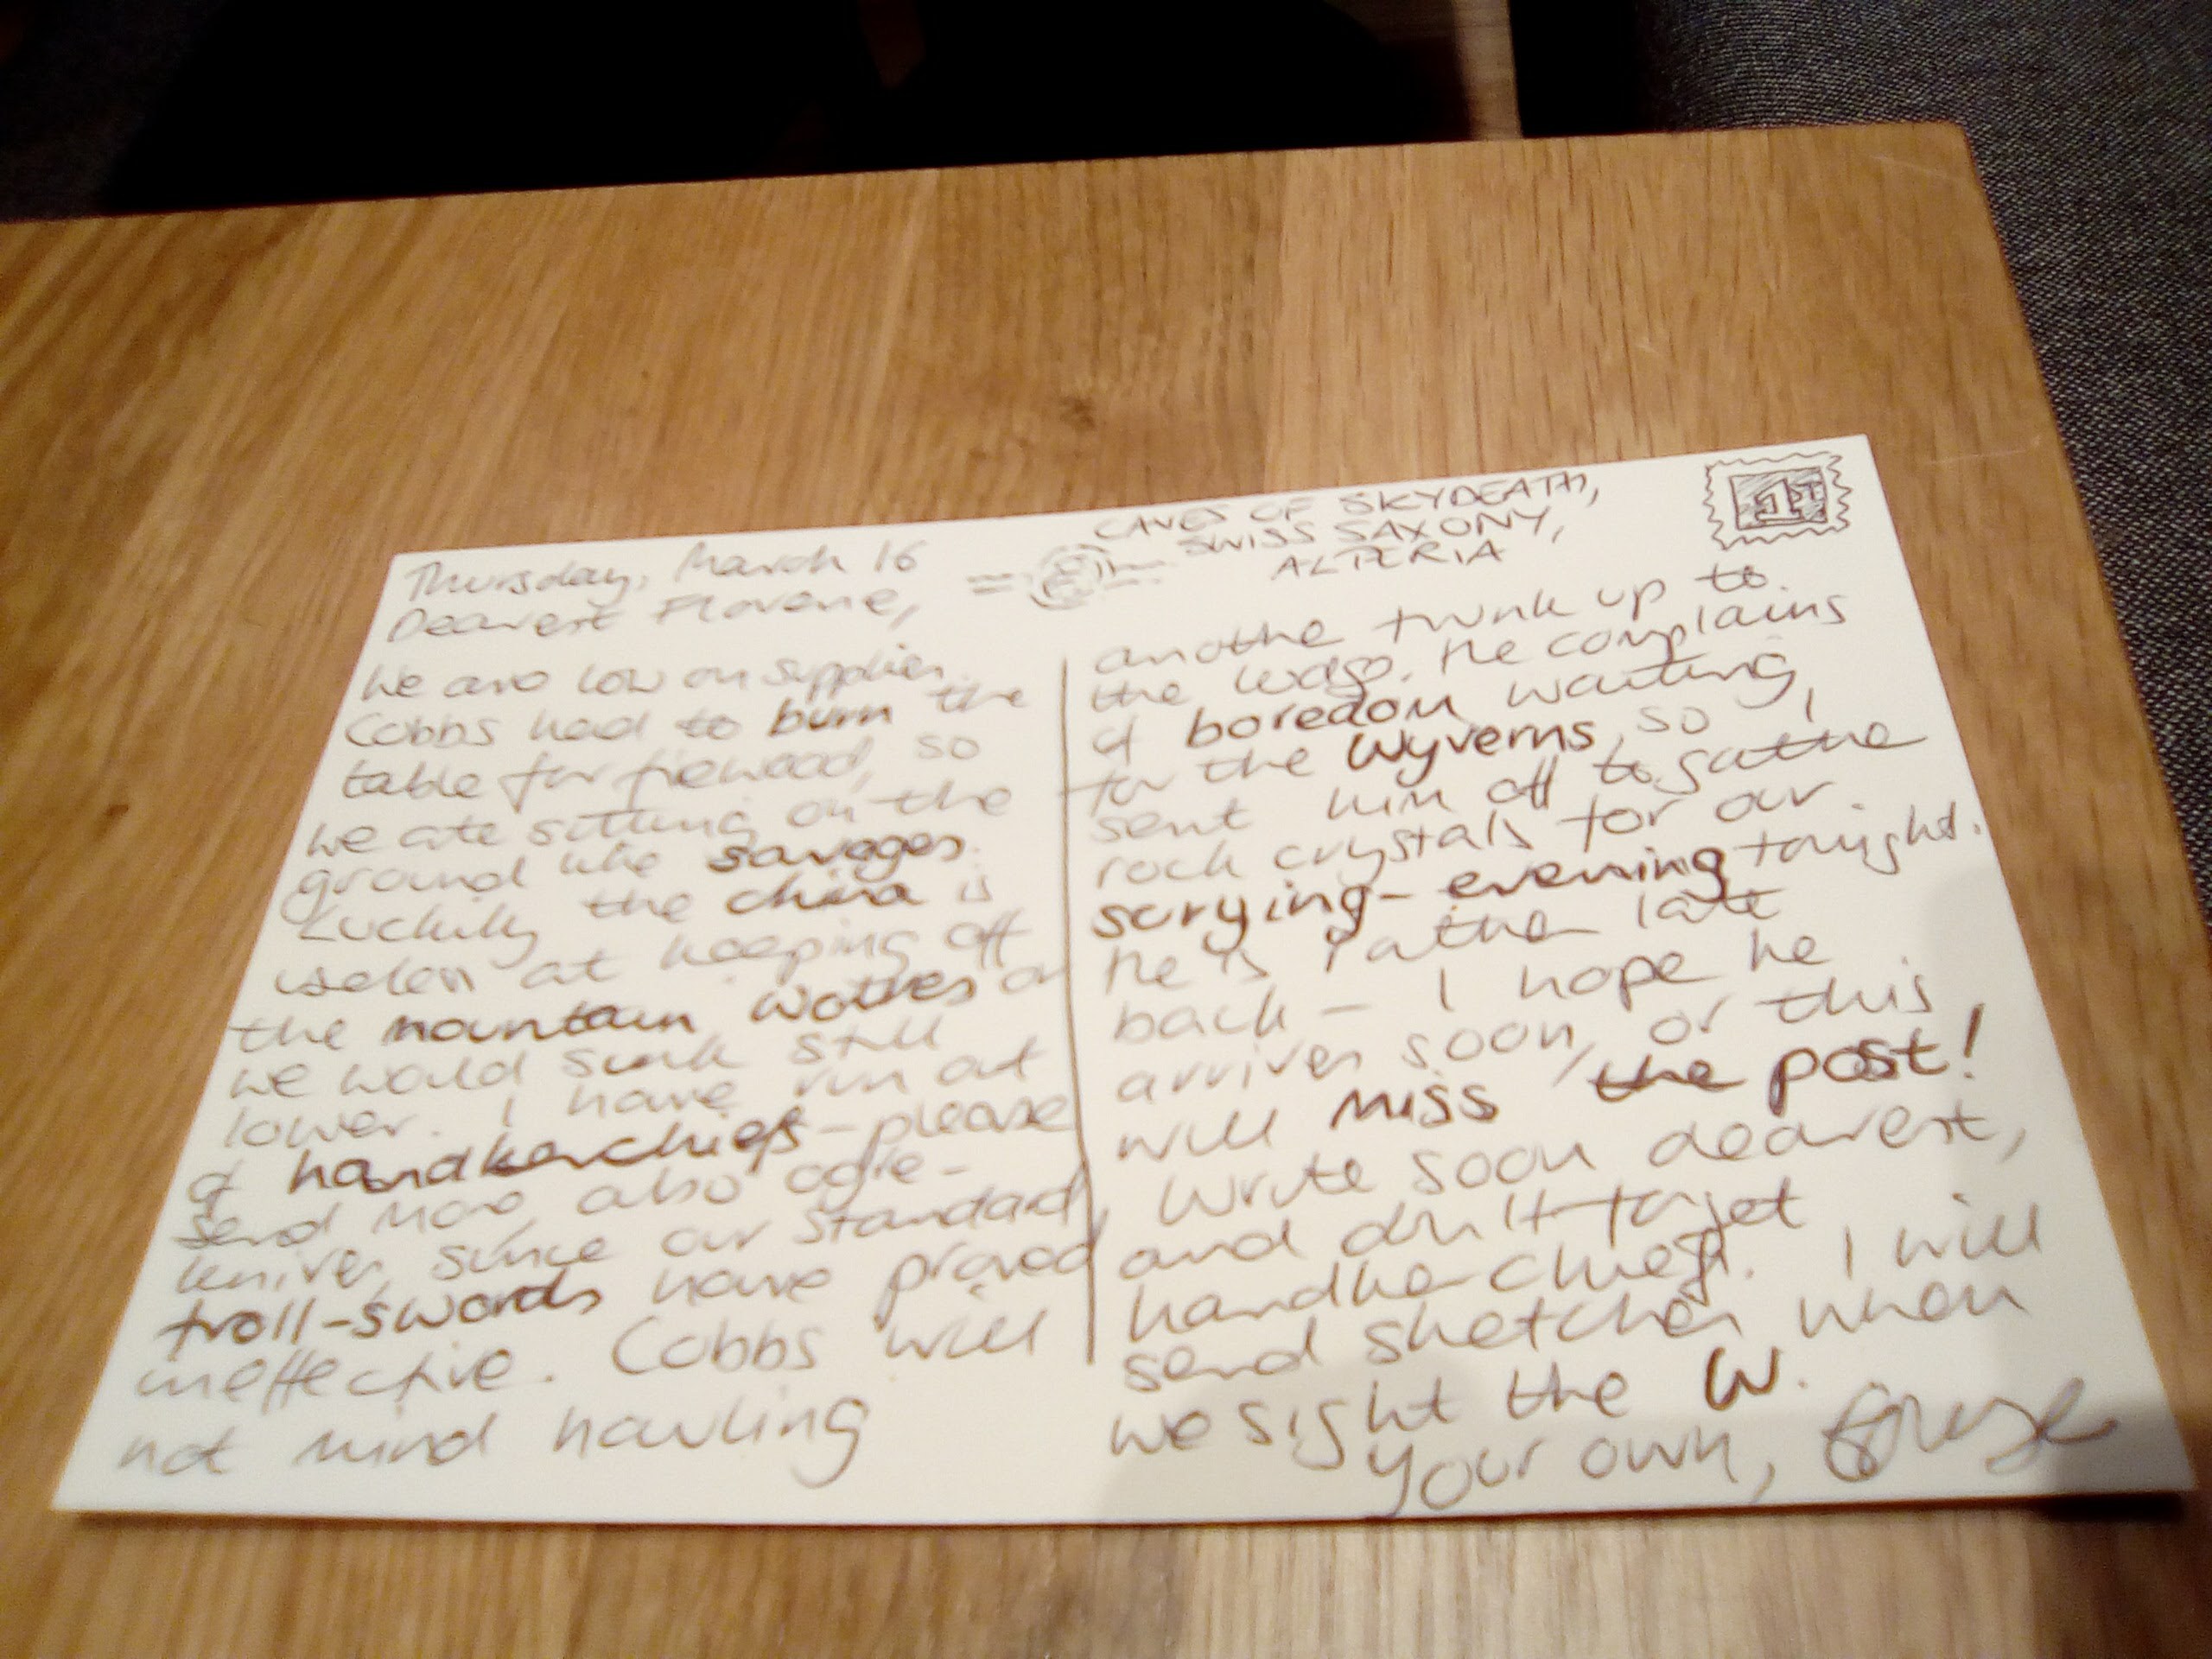 Thursday, March 16
Dearest Florene,
We are low on supplies.
Cobbs had to burn the
table for firewood, so
we ate sitting on the
ground like savages.
Luckily the china is
useless at keeping off
the mountain wolves or
we would sink still
lower. I have run out
of handkerchiefs - please
send more, also ogre-
knives, since our standard
troll-swords have proved
ineffective. Cobbs will
not mind hauling
CAVES OF SKYDEATH,
SWISS SAXONY,
ALPERIA
1ST
another trunk up to
the ledge. He complains
of boredom waiting,
for the Wyverns, so I
sent him off to gather
rock crystals for our
scrying-evening tonight.
He is rather late
back - I hope he
arrives soon, or this
will miss the post!
Write soon dearest,
and don't forget
handkerchiefs. I will
send sketches when
we sight the W.
Your own,